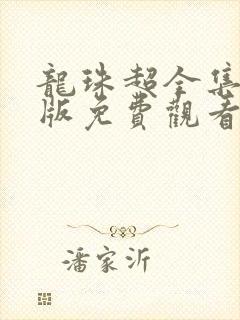 龍珠超全集
版免費觀看
潘家沂